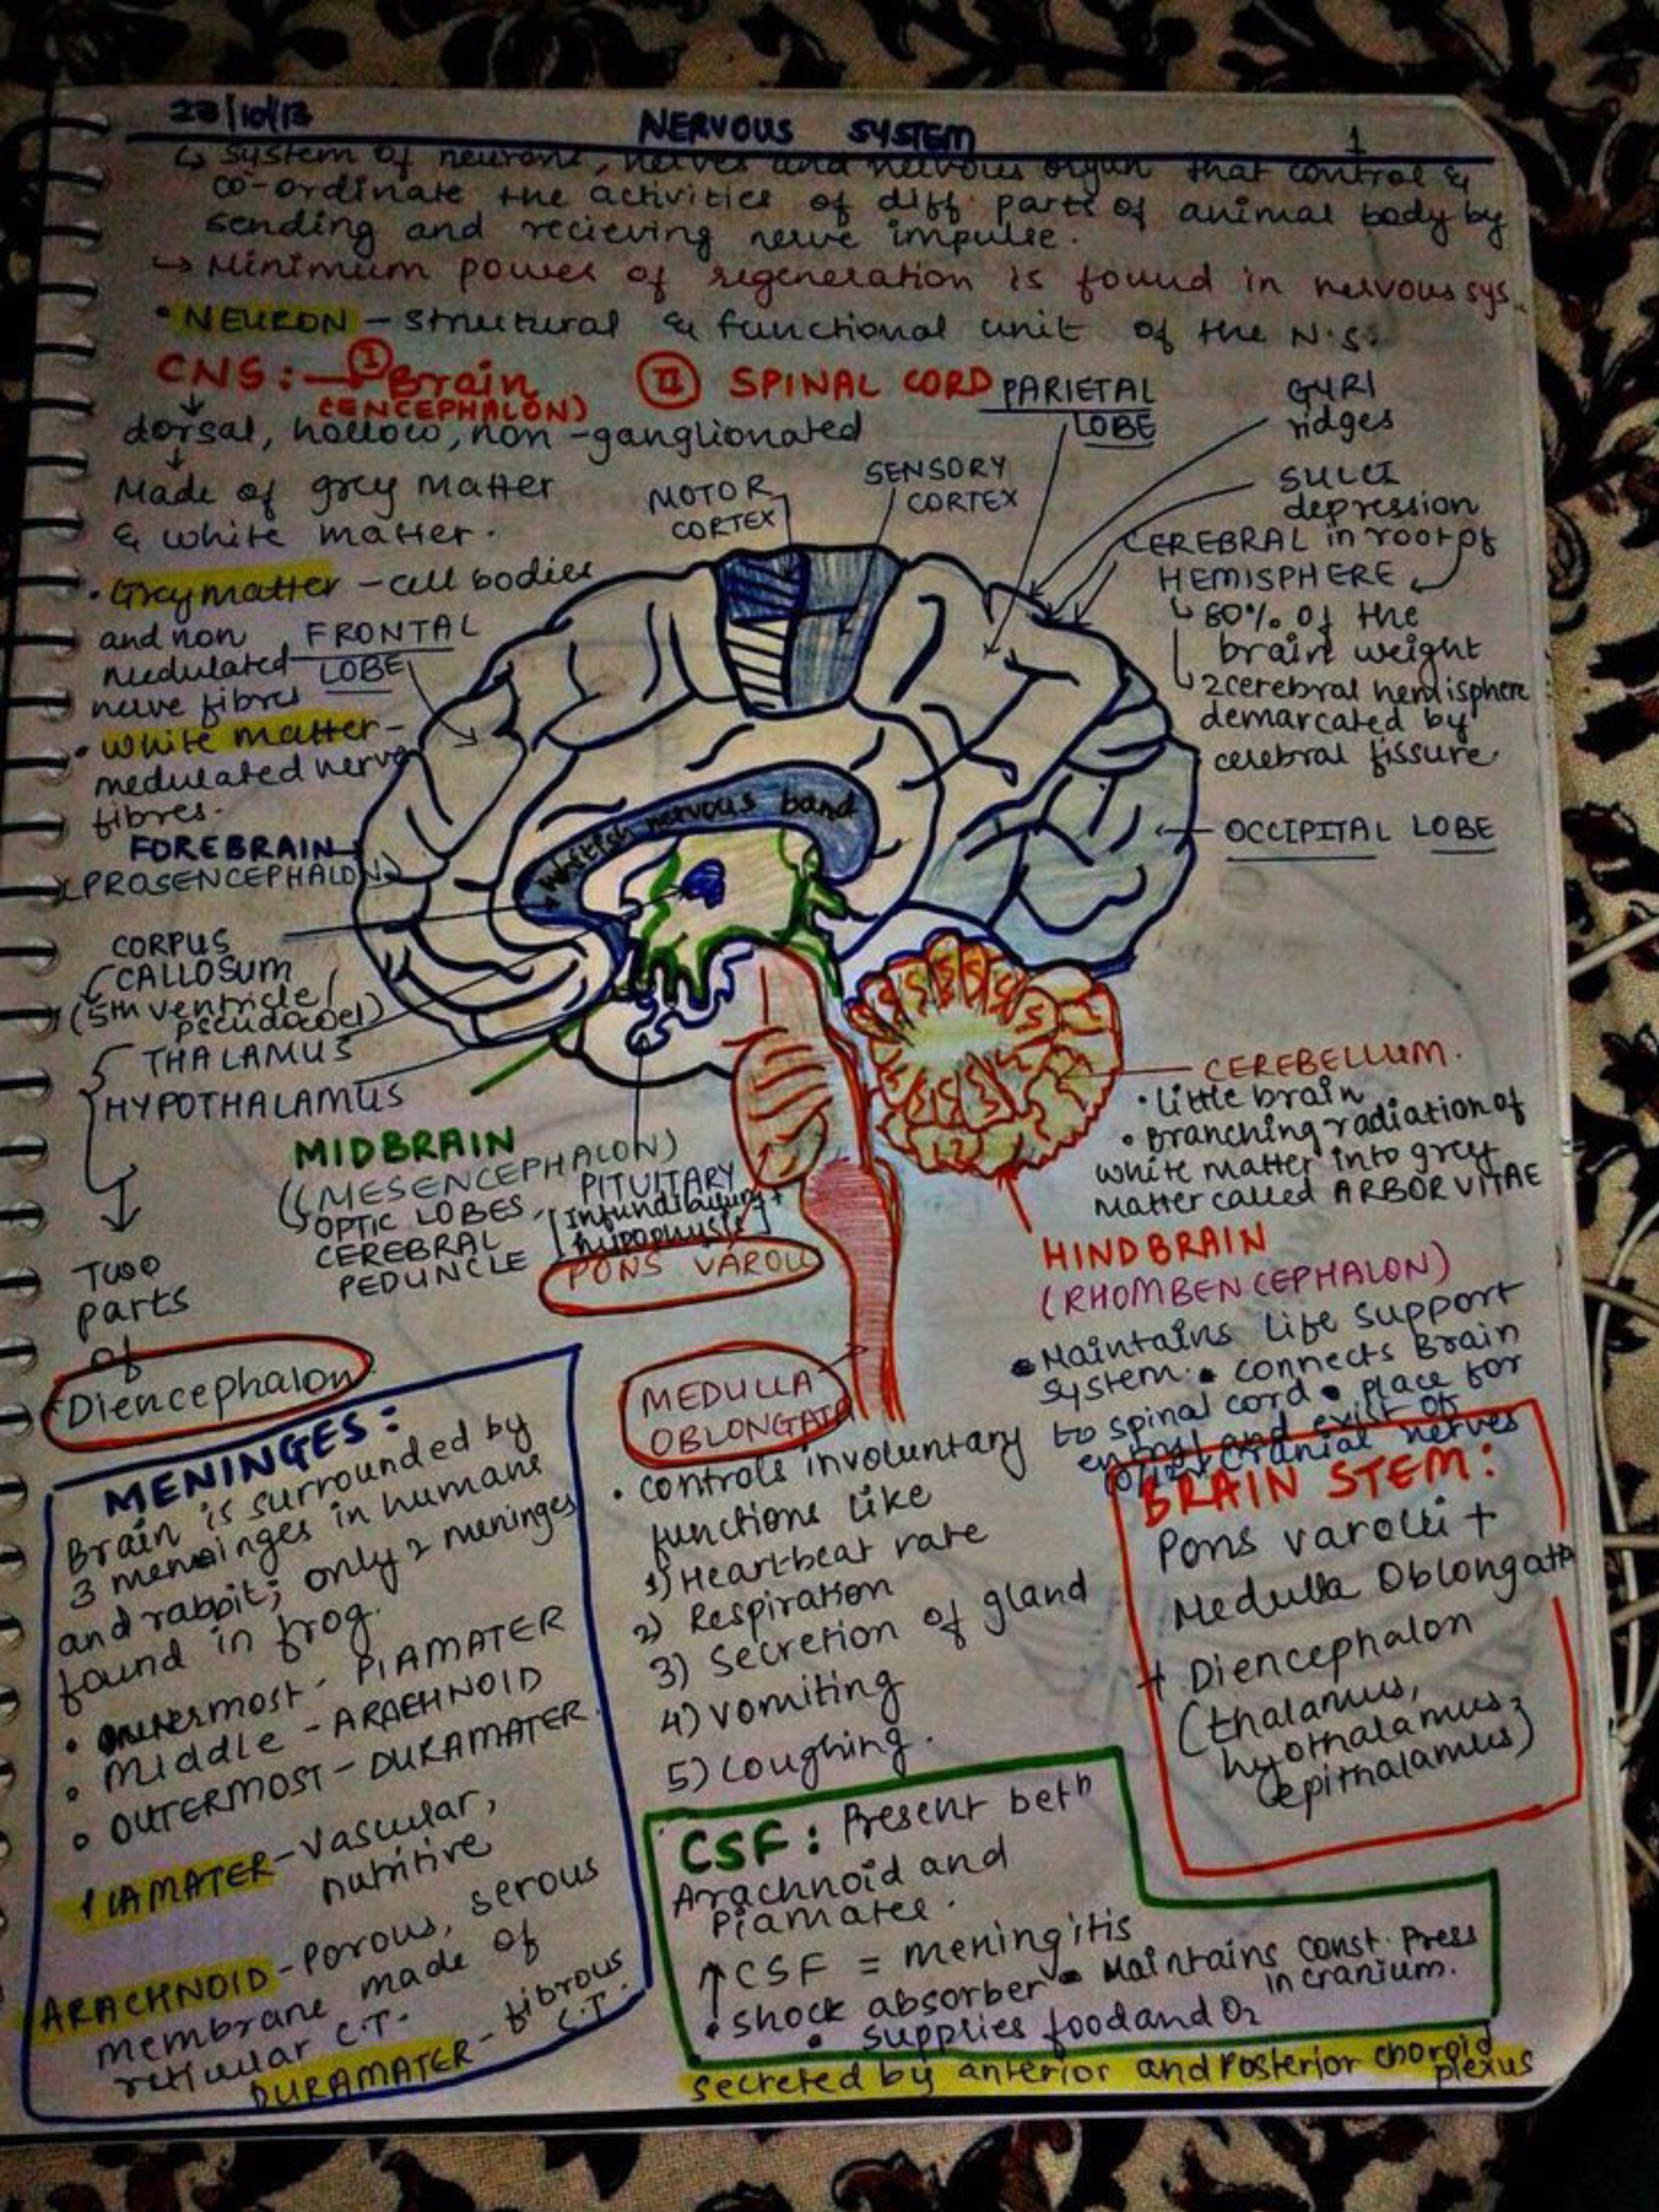 23/10/13
NERVOUS SYSTEM
1
↳ system of neurons, nerves and nervous organ that control &
co-ordinate the activities of diff. parts of animal body by
sending and recieving nerve impulse.
→ Minimum power of regeneration is found in nervous sys.
• NEURON - structural & functional unit of the N.S.
CNS: → I Brain
(ENCEPHALON)
II SPINAL CORD
dorsal, hollow, non-ganglionated
Made of grey matter
& white matter.
• Grey matter - cell bodies
and non
medulated
nerve fibres
• White matter -
medulated nerve
fibres.
MOTOR
CORTEX
SENSORY
CORTEX
PARIETAL
LOBE
GYRI
ridges
SULCI
depression
in roof of
CEREBRAL
HEMISPHERE
↳ 80% of the
brain weight
↳ 2 cerebral hemisphere
demarcated by
cerebral fissure
FRONTAL
LOBE
OCCIPITAL LOBE
whitish nervous band
FOREBRAIN
(PROSENCEPHALON)
CORPUS
CALLOSUM
(5th ventricle/
pseudocoel)
THALAMUS
HYPOTHALAMUS
Two
parts
of
Diencephalon
MIDBRAIN
(MESENCEPHALON)
OPTIC LOBES
CEREBRAL
PEDUNCLE
PITUITARY
[Infundibulum +
hypophysis]
PONS VAROLI
CEREBELLUM.
• little brain
• Branching radiation of
white matter into grey
matter called ARBOR VITAE
HINDBRAIN
(RHOMBENCEPHALON)
• Maintains life support
system. • connects Brain
to spinal cord • place for
and exist of
cranial nerves
MEDULLA
OBLONGATA
• controls involuntary
functions like
1) Heart-beat rate
2) Respiration
3) Secretion of gland
4) vomiting
5) coughing.
BRAIN STEM:
Pons varolli +
Medulla Oblongata
+ Diencephalon
(thalamus,
hyothalamus,
epithalamus)
MENINGES:
Brain is surrounded by
3 meninges in humans
and rabbit; only 2 meninges
found in frog.
• PIAMATER
• Middle - ARACHNOID
• OUTERMOST - DURAMATER
PIAMATER - Vascular,
nutritive
ARACHNOID - Porous, serous
membrane made of
reticular C.T.
DURAMATER - fibrous
C.T.
CSF: Present betn
Arachnoid and
Piamater.
↑ CSF = meningitis
• shock absorber • Maintains const. Press
in cranium.
• supplies food and O2
secreted by anterior and Posterior choroid
plexus